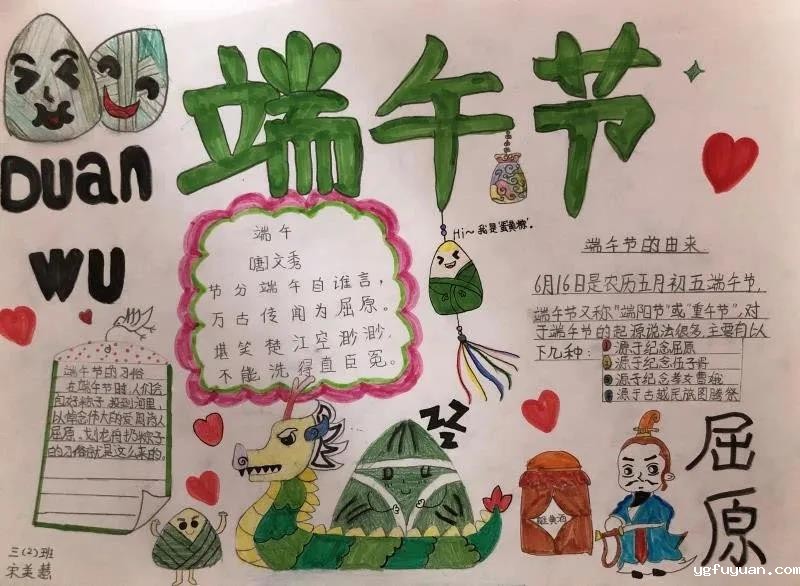 端午节
Duan
WU
Hi~我是"蛋黄粽".
端午
唐文秀
节分端午自谁言，
万古传闻为屈原。
堪笑楚江空渺渺，
不能洗得直臣冤。
端午节的由来
6月16日是农历五月初五端午节，
端午节又称"端阳节"或"重午节"，对
于端午节的起源说法很多，主要有以
下几种：
1源于纪念屈原
2源于纪念伍子胥
3源于纪念孝女曹娥
4源于古越民族图腾祭
端午节的习俗
在端午节时，人们会
包好粽子，投到河里，
以悼念伟大的爱国诗人
屈原。划龙舟扔粽子
的习俗就是这么来的。
ZZZ
雄黄酒
屈原
三(2)班
宋美慧
ygfuyuan.com